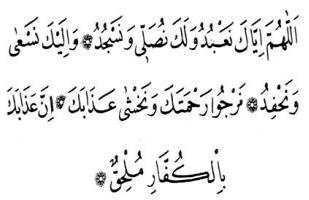 اَللّٰهُمَّ اِيَّاكَ نَعْبُدُ وَلَكَ نُصَلّ۪ى وَنَسْجُدُ ۞ وَاِلَيْكَ نَسْعٰى
وَنَحْفِدُ ۞ نَرْجُوا رَحْمَتَكَ وَنَخْشٰى عَذَابَكَ ۞ اِنَّ عَذَابَكَ
بِالْكُفَّارِ مُلْحِقٌ ۞